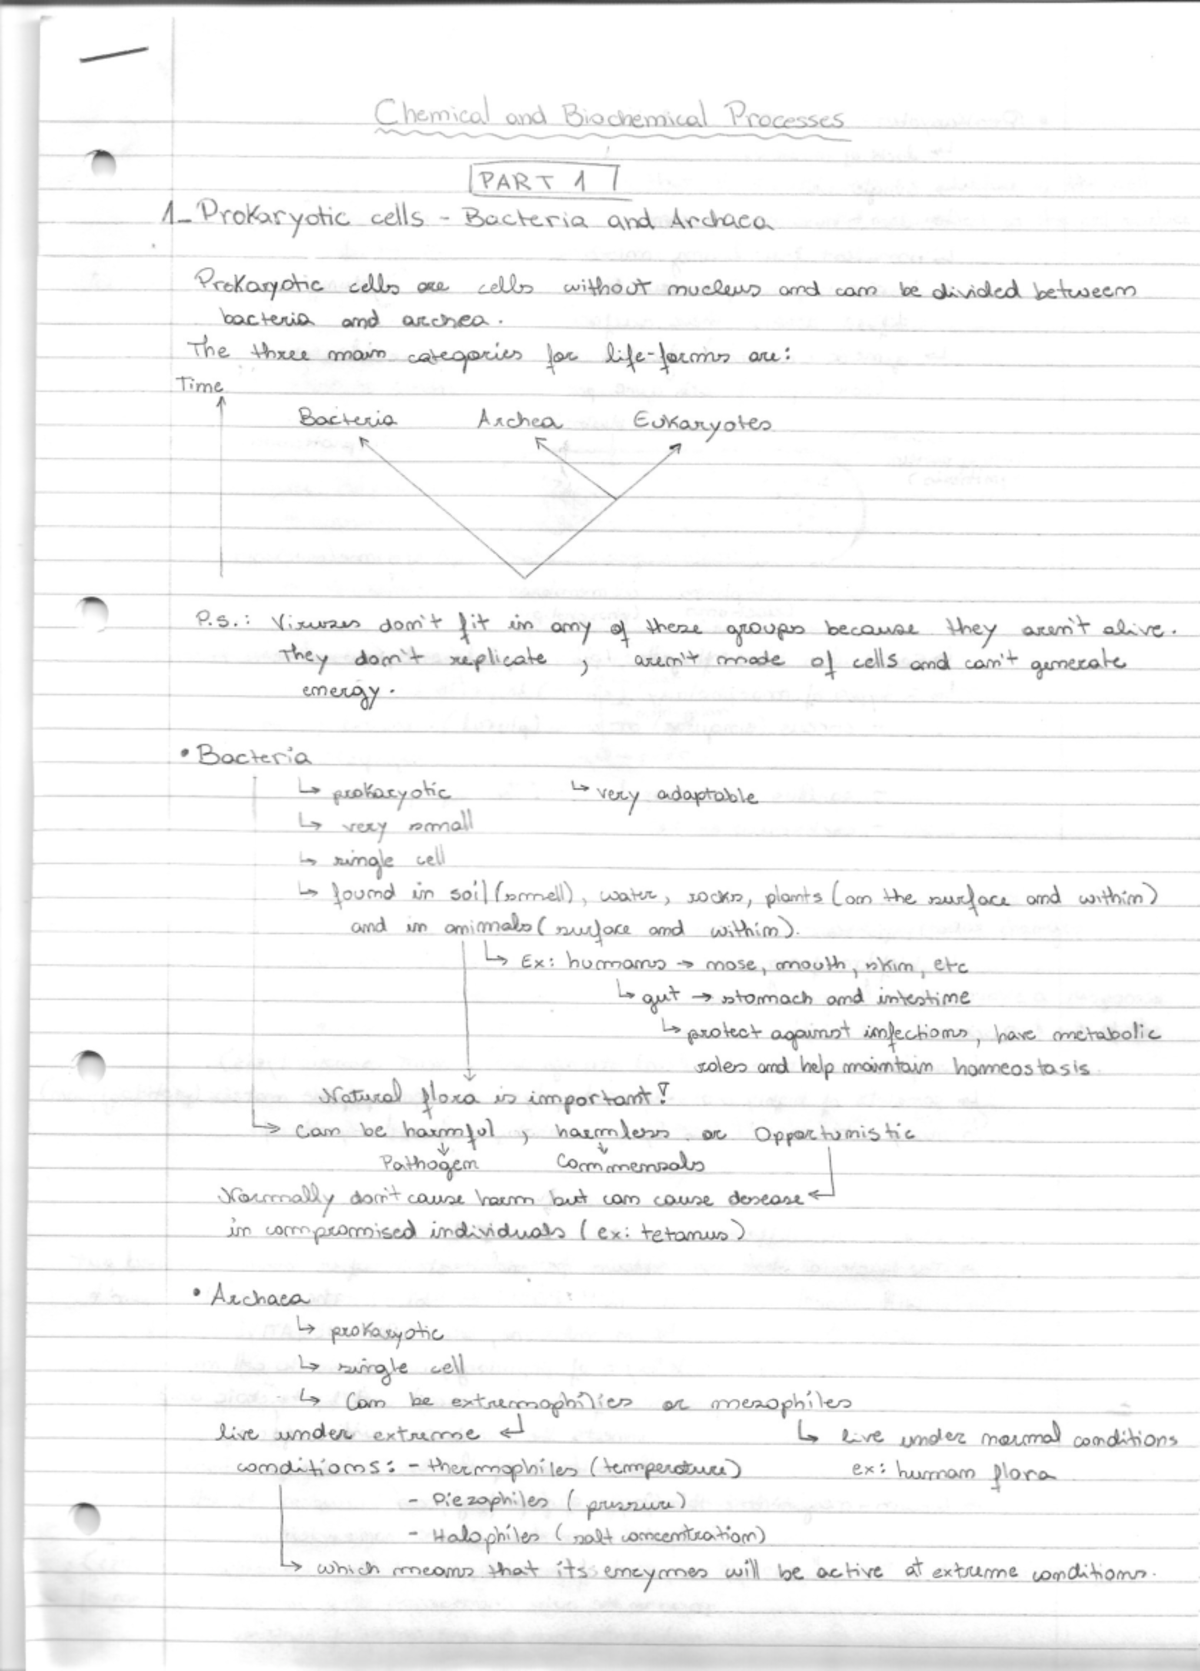 Chemical and Biochemical Processes
PART 1
1_ Prokaryotic cells - Bacteria and Archaea
Prokaryotic cells are cells without nucleus and can be divided between
bacteria and archea.
The three main categories for life-forms are:
Time
Bacteria Archea Eukaryotes
P.s.: Viruses don't fit in any of these groups because they aren't alive.
They don't replicate, aren't made of cells and can't generate
energy.
• Bacteria
↳ prokaryotic ↳ very adaptable
↳ very small
↳ single cell
↳ found in soil (smell), water, rocks, plants (on the surface and within)
and in animals (surface and within).
↳ Ex: humans → nose, mouth, skin, etc
↳ gut → stomach and intestine
↳ protect against infections, have metabolic
roles and help maintain homeostasis.
Natural flora is important!
↳ can be harmful, harmless or Opportunistic
Pathogen Commensals
Normally don't cause harm but can cause desease
in compromised individuals (ex: tetanus)
• Archaea
↳ prokaryotic
↳ single cell
↳ Can be extremophilies or mesophiles
live under extreme ↳ live under normal conditions
conditions: - thermophiles (temperature) ex: human flora
- Piezophiles (pressure)
- Halophiles (salt concentration)
↳ which means that its enzymes will be active at extreme conditions.